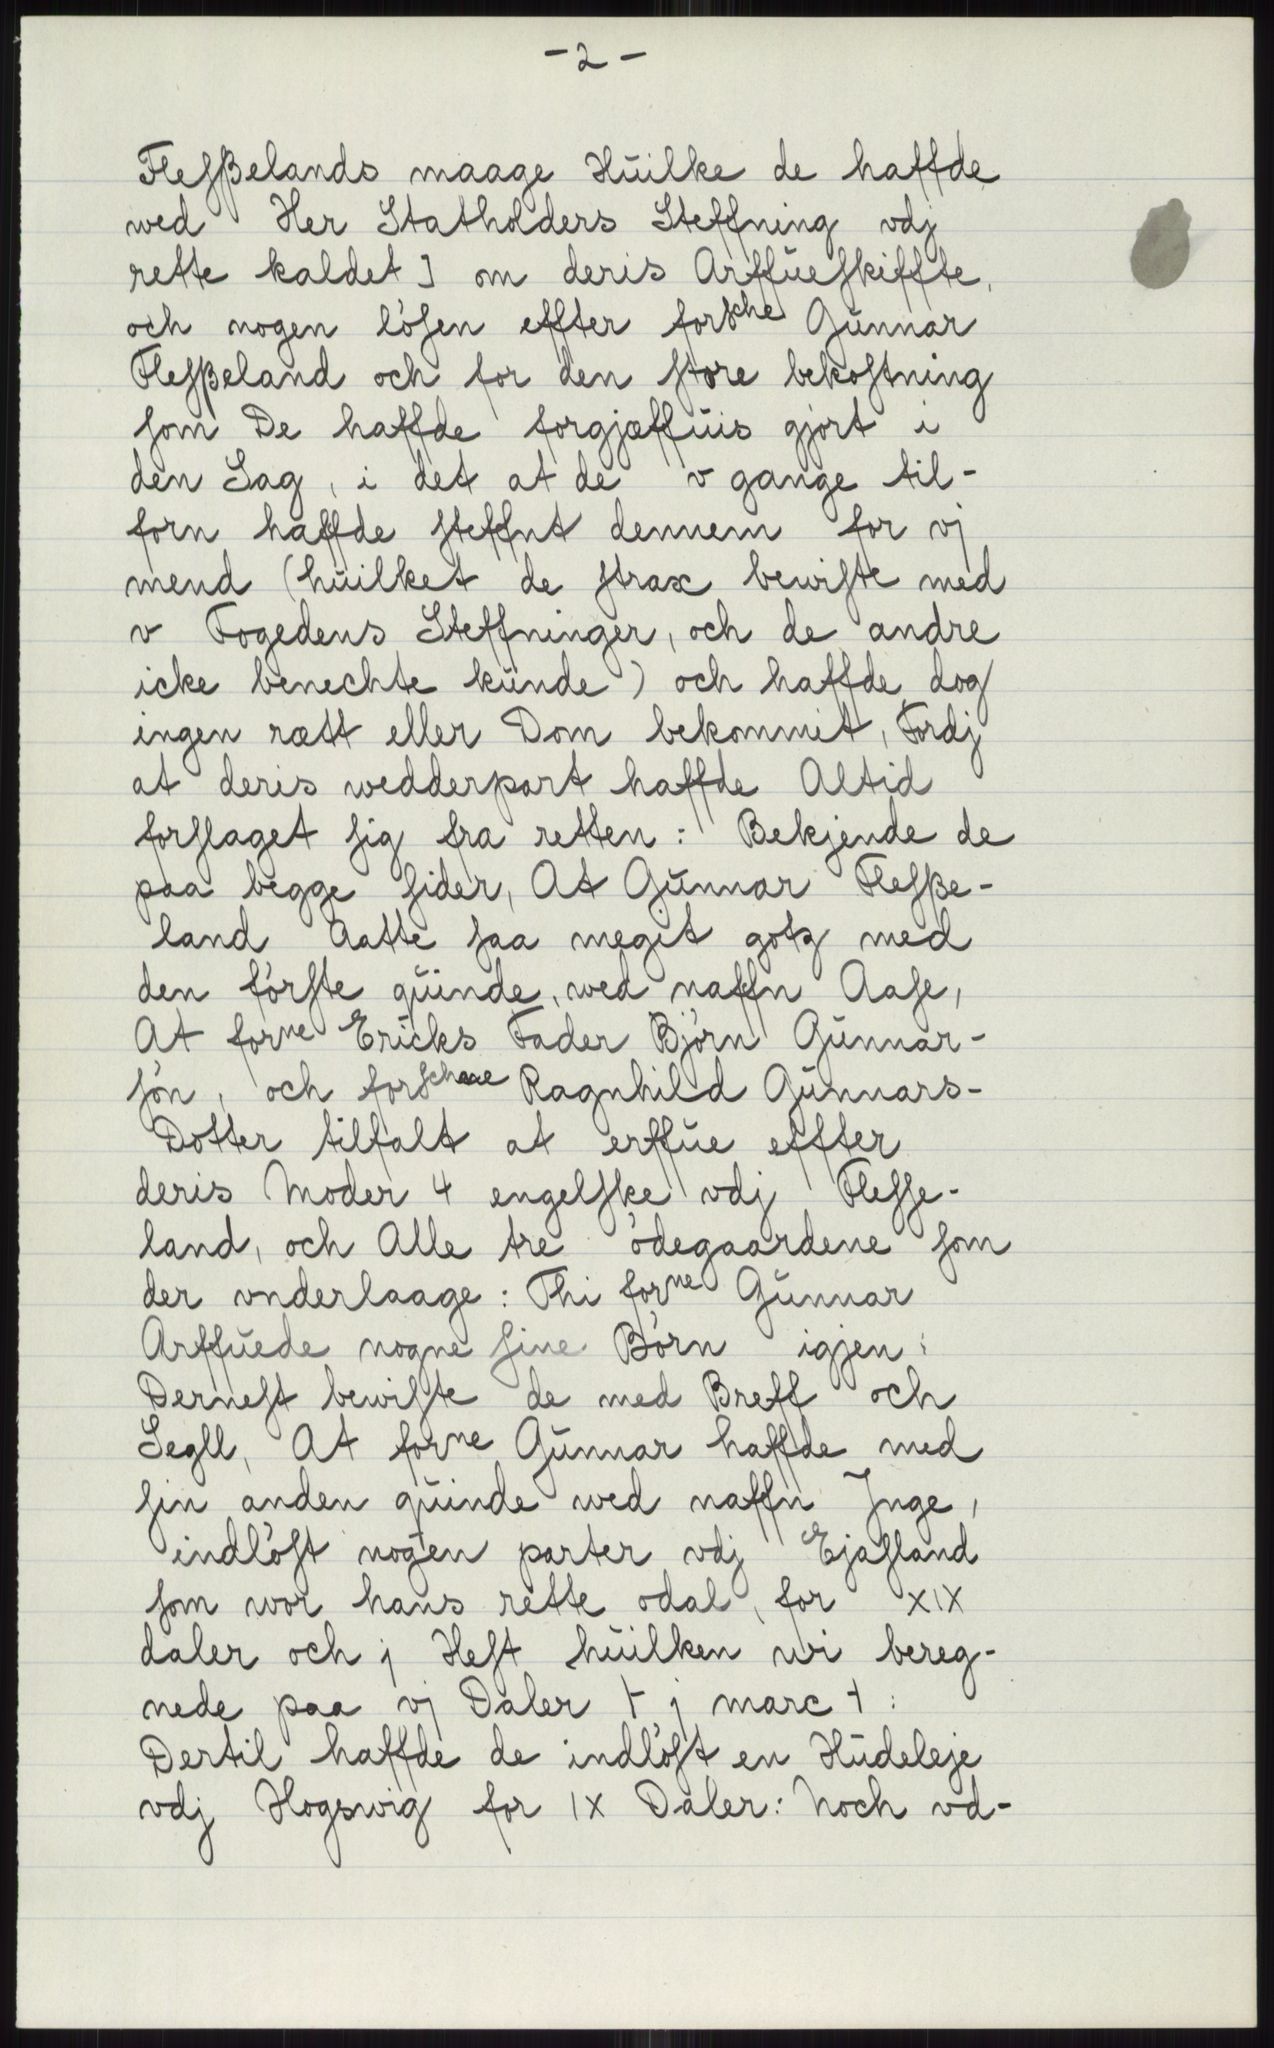 -2-
Flesßelands maage Huilke de haffde
wed Her Statholders Steffning vdj
rette kaldet] om deris Arffueskiffte,
och nogen lösen effter forsche Gunnar
Flesßeland och for den store bekostning
som De haffde forgjæffuis gjort i
den Sag, i det at de v gange til-
forn haffde steffnt dennem for vj
mend (huilket de strax bewiste med
v Fogedens Steffninger, och de andre
icke benechte kunde) och haffde dog
ingen rætt eller Dom bekommit, Fordj
at deris wedderpart haffde Altid
forslaget sig fra retten: Bekjende de
paa begge sider, At Gunnar Flesße-
land Aatte saa megit gotz med
den förste quinde, wed naffn Aase,
At forne Ericks Fader Björn Gunnar-
sön, och forschne Ragnhild Gunnars-
Dotter tilfalt at erffue effter
deris Moder 4 engelske vdj Flesse-
land, och Alle tre ödegaardene som
der vnderlaage: Thi forne Gunnar
Arffuede nogne sine Börn igjen:
Dernest bewiste de med Breff och
Segll, At forne Gunnar haffde med
sin anden quinde wed naffn Inge,
indlöst nogen parter vdj Ejasland
som wor hans rette odal, for XIX
daler och j Hest huilken wi bereg-
nede paa vj Daler + j marc +:
Dertil haffde de indlöst en Hudeleje
vdj Hogswig for IX Daler: Noch vd-